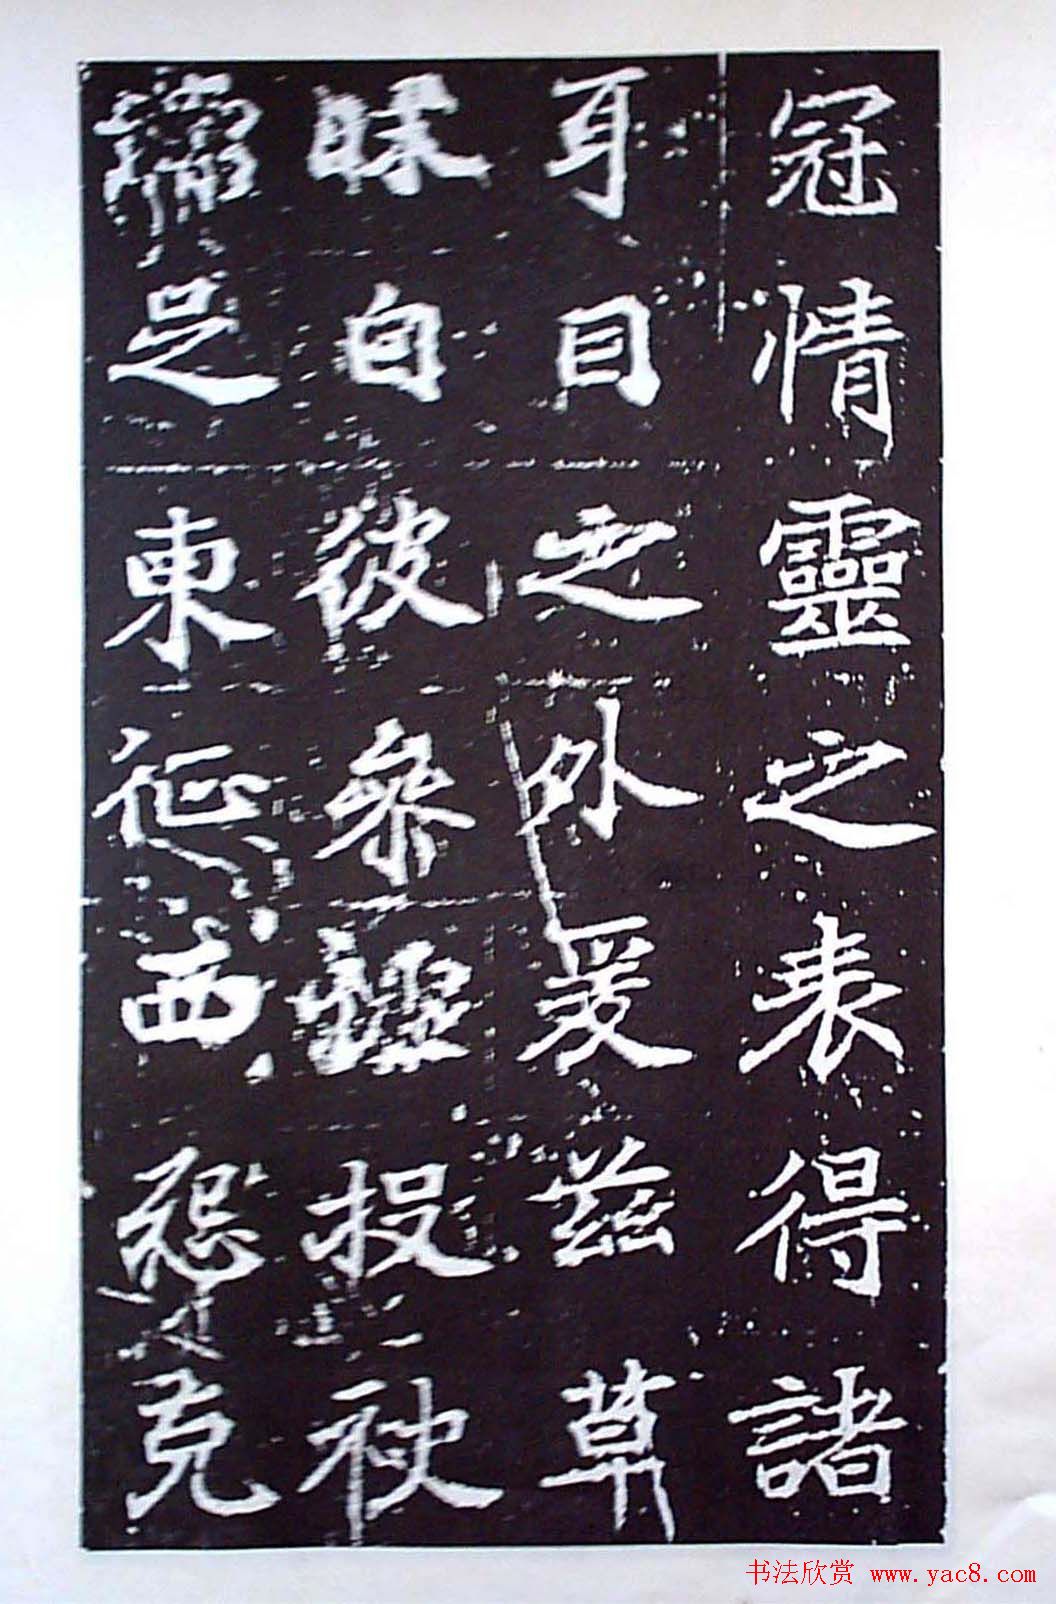 冠情靈之表得諸
耳目之外爰茲草
昧自彼參墟投袂
濡足東征西怨克
书法欣赏 www.yac8.com